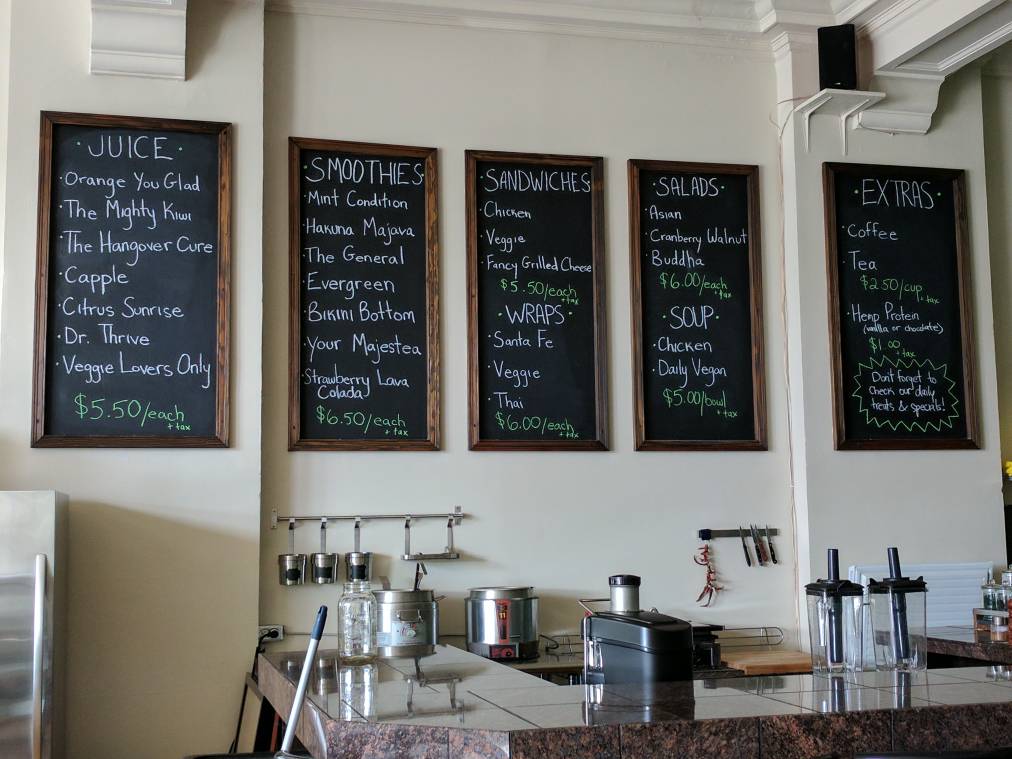 JUICE
Orange You Glad
The Mighty Kiwi
The Hangover Cure
Capple
Citrus Sunrise
Dr. Thrive
Veggie Lovers Only
$5.50/each
+ tax
SMOOTHIES
Mint Condition
Hakuna Majava
The General
Evergreen
Bikini Bottom
Your Majestea
Strawberry Lava
Colada
$6.50/each
+ tax
SANDWICHES
Chicken
Veggie
Fancy Grilled Cheese
$5.50/each
+tax
WRAPS
Santa Fe
Veggie
Thai
$6.00/each
+tax
SALADS
Asian
Cranberry Walnut
Buddha
$6.00/each
+tax
SOUP
Chicken
Daily Vegan
$5.00/bowl
+tax
EXTRAS
Coffee
Tea
$2.50/cup
+tax
Hemp Protein
(vanilla or chocolate)
$1.00
+tax
Don't forget to
check our daily
treats & specials!